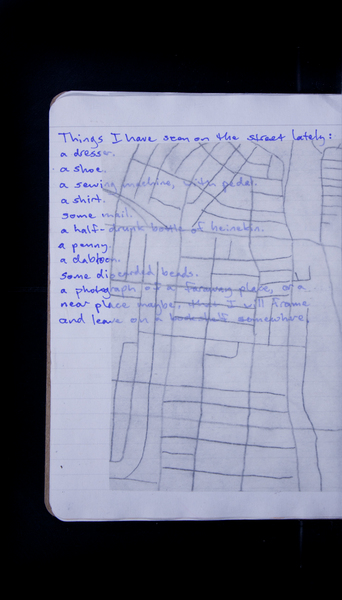 Things I have seen on the street lately:
a dresser.
a shoe.
a sewing machine, with pedal.
a shirt.
some mail.
a half-drunk bottle of heineken.
a penny.
a
some discarded beads.
a photograph of a faraway place, or a
near place maybe, that I will frame
and leave on a bookshelf somewhere.